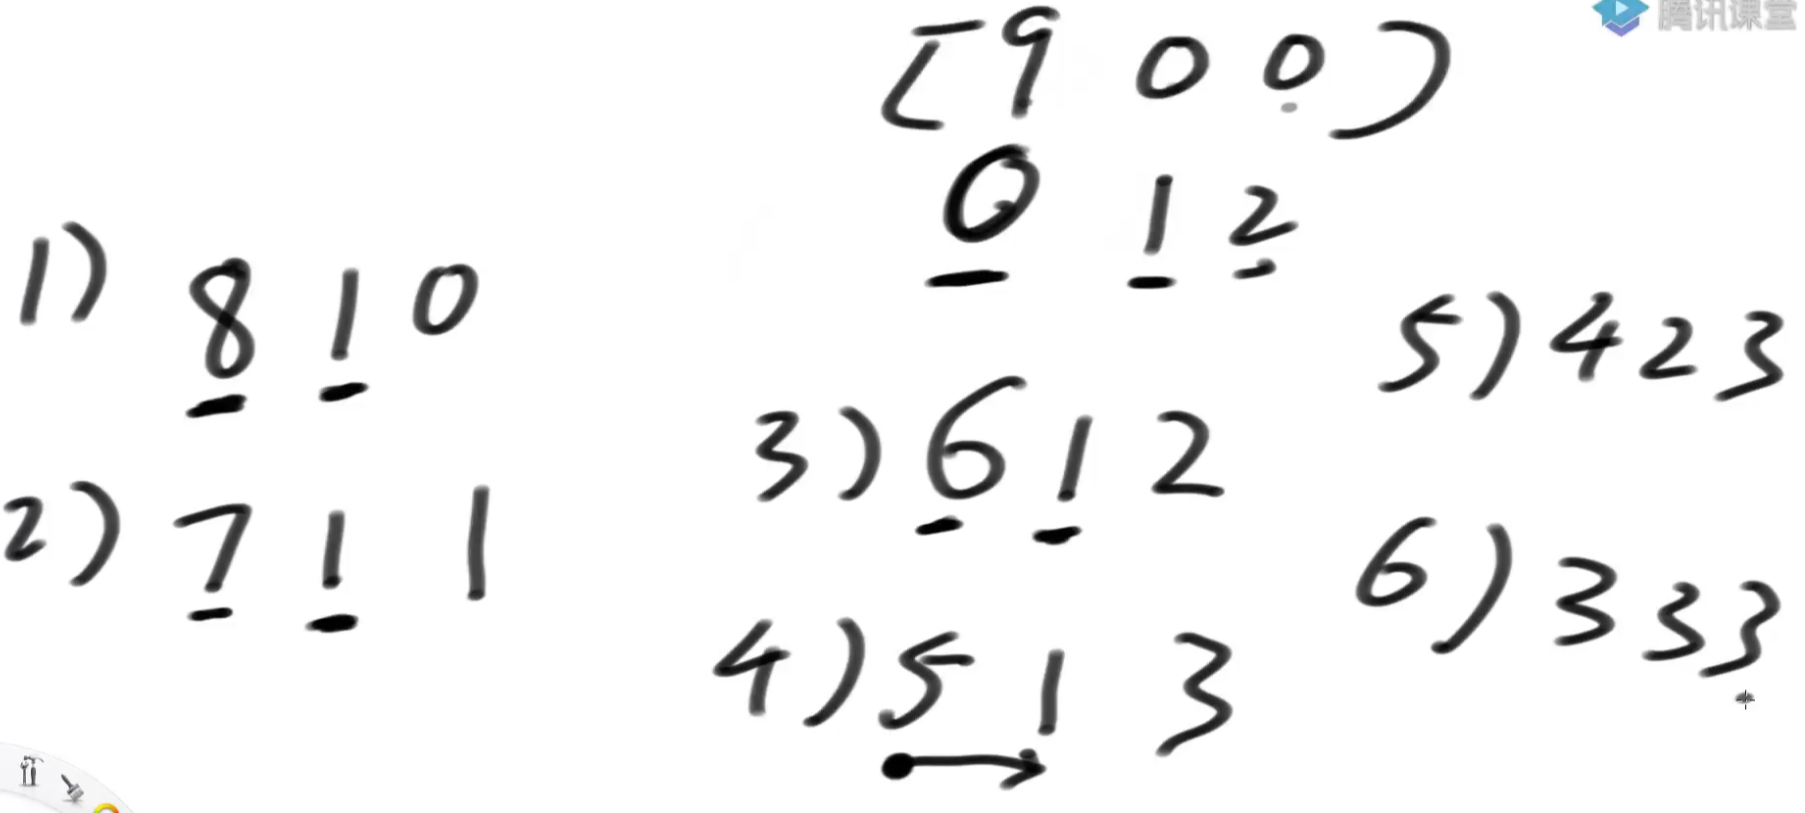 腾讯课堂
[9 0 0)
0 1 2
1) 8 1 0
2) 7 1 1
3) 6 1 2
4) 5 1 3
5) 4 2 3
6) 3 3 3